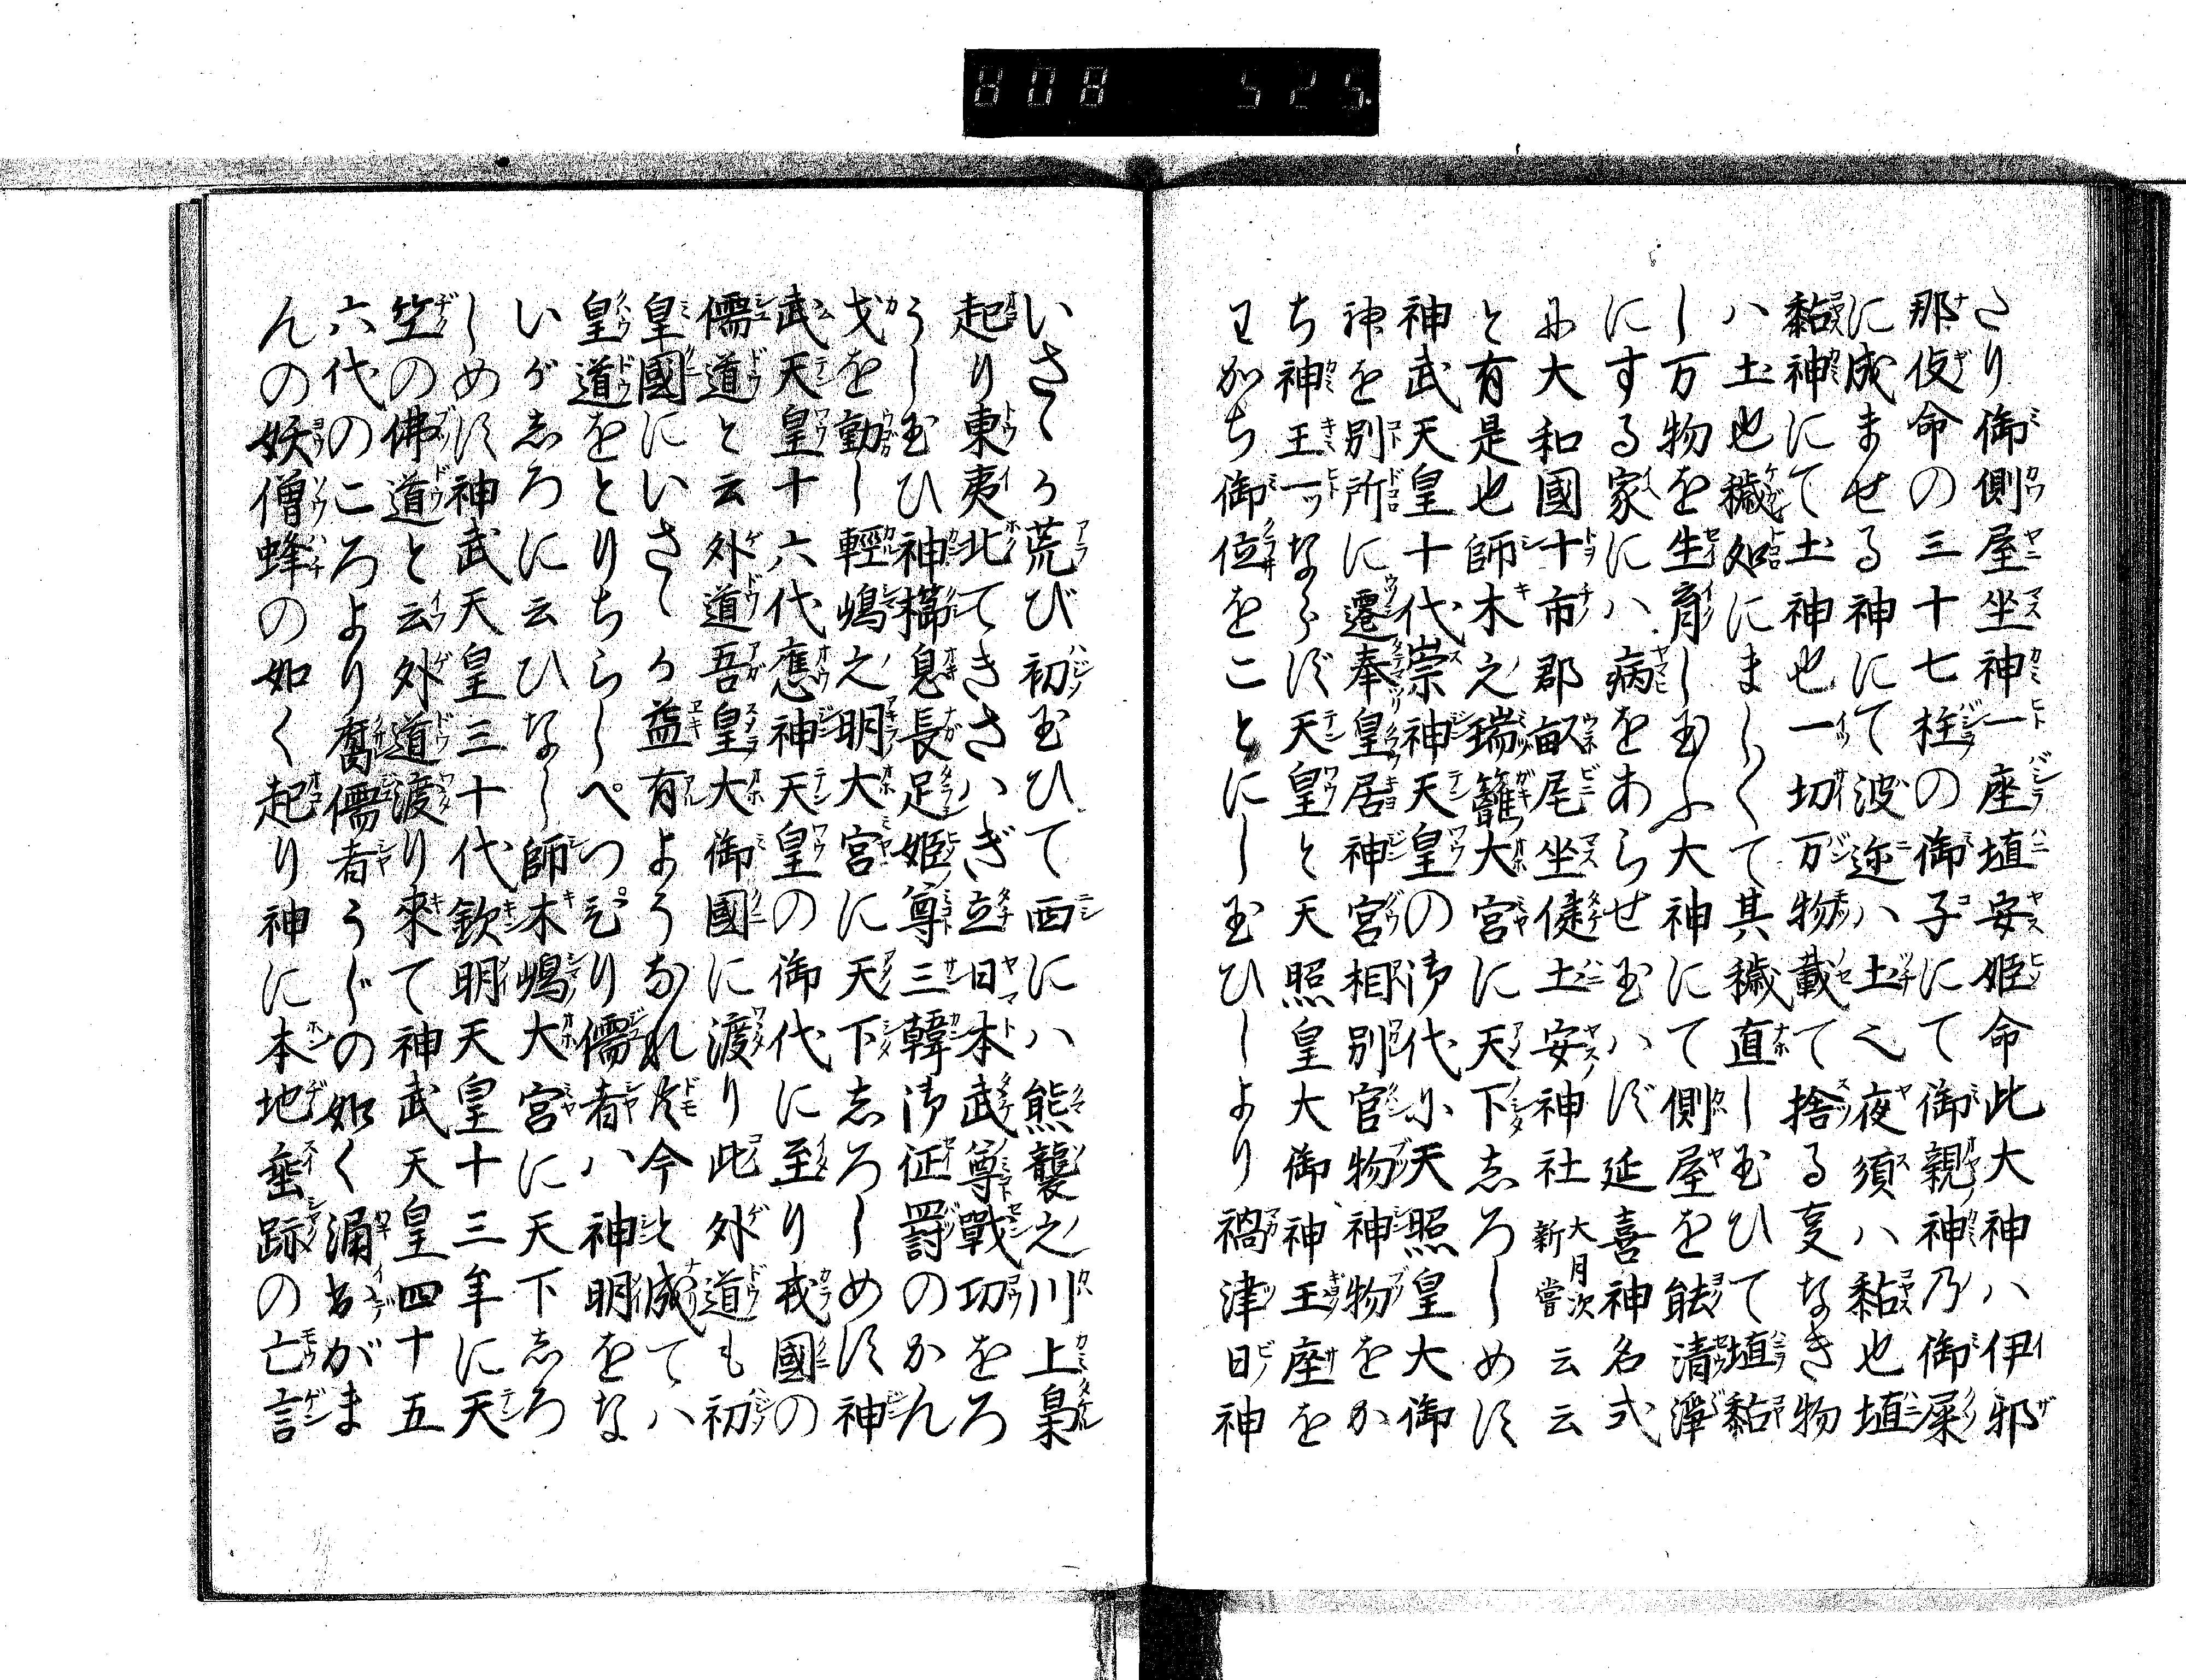 808 525
さり御側屋坐神一座埴安姫命此大神ハ伊邪
那伎命の三十七柱の御子にて御親神乃御屎
に成ませる神にて波迩ハ土也夜須ハ黏也埴
黏神にて土神也一切万物載て捨る事なき物
ハ土也穢如にましくて其穢直し玉ひて埴黏
し万物を生育し玉ふ大神にて側屋を能清浄
にする家にハ病をあらせ玉ハず延喜神名式
に大和國十市郡畝尾坐健土安神社大月次新嘗云云
と有是也師木之瑞籬大宮に天下志ろしめす
神武天皇十代崇神天皇の御代に天照皇大御
神を別所に遷奉皇居神宮相別官物神物をか
ち神王一ッならず天皇と天照皇大御神王座を
わかち御位をことにし玉ひしより禍津日神
いさゝか荒び初玉ひて西にハ熊襲之川上梟
起り東夷北てきさハぎ立日本武尊戰功をろ
うし玉ひ神櫛息長足姫尊三韓御征罰のかん
戈を動し輕嶋之明大宮に天下志ろしめす神
武天皇十六代應神天皇の御代に至り戎國の
儒道と云外道吾皇大御國に渡り此外道も初
皇國にいさゝか益有ようなれ共今と成てハ
皇道をとりちらしぺつぴり儒者ハ神明をな
いがしろに云ひなし師木嶋大宮に天下志ろ
しめす神武天皇三十代欽明天皇十三年に天
竺の佛道と云外道渡り來て神武天皇四十五
六代のころより腐儒者うじの如く涌出がま
んの妖僧蜂の如く起り神に本地垂跡の亡言